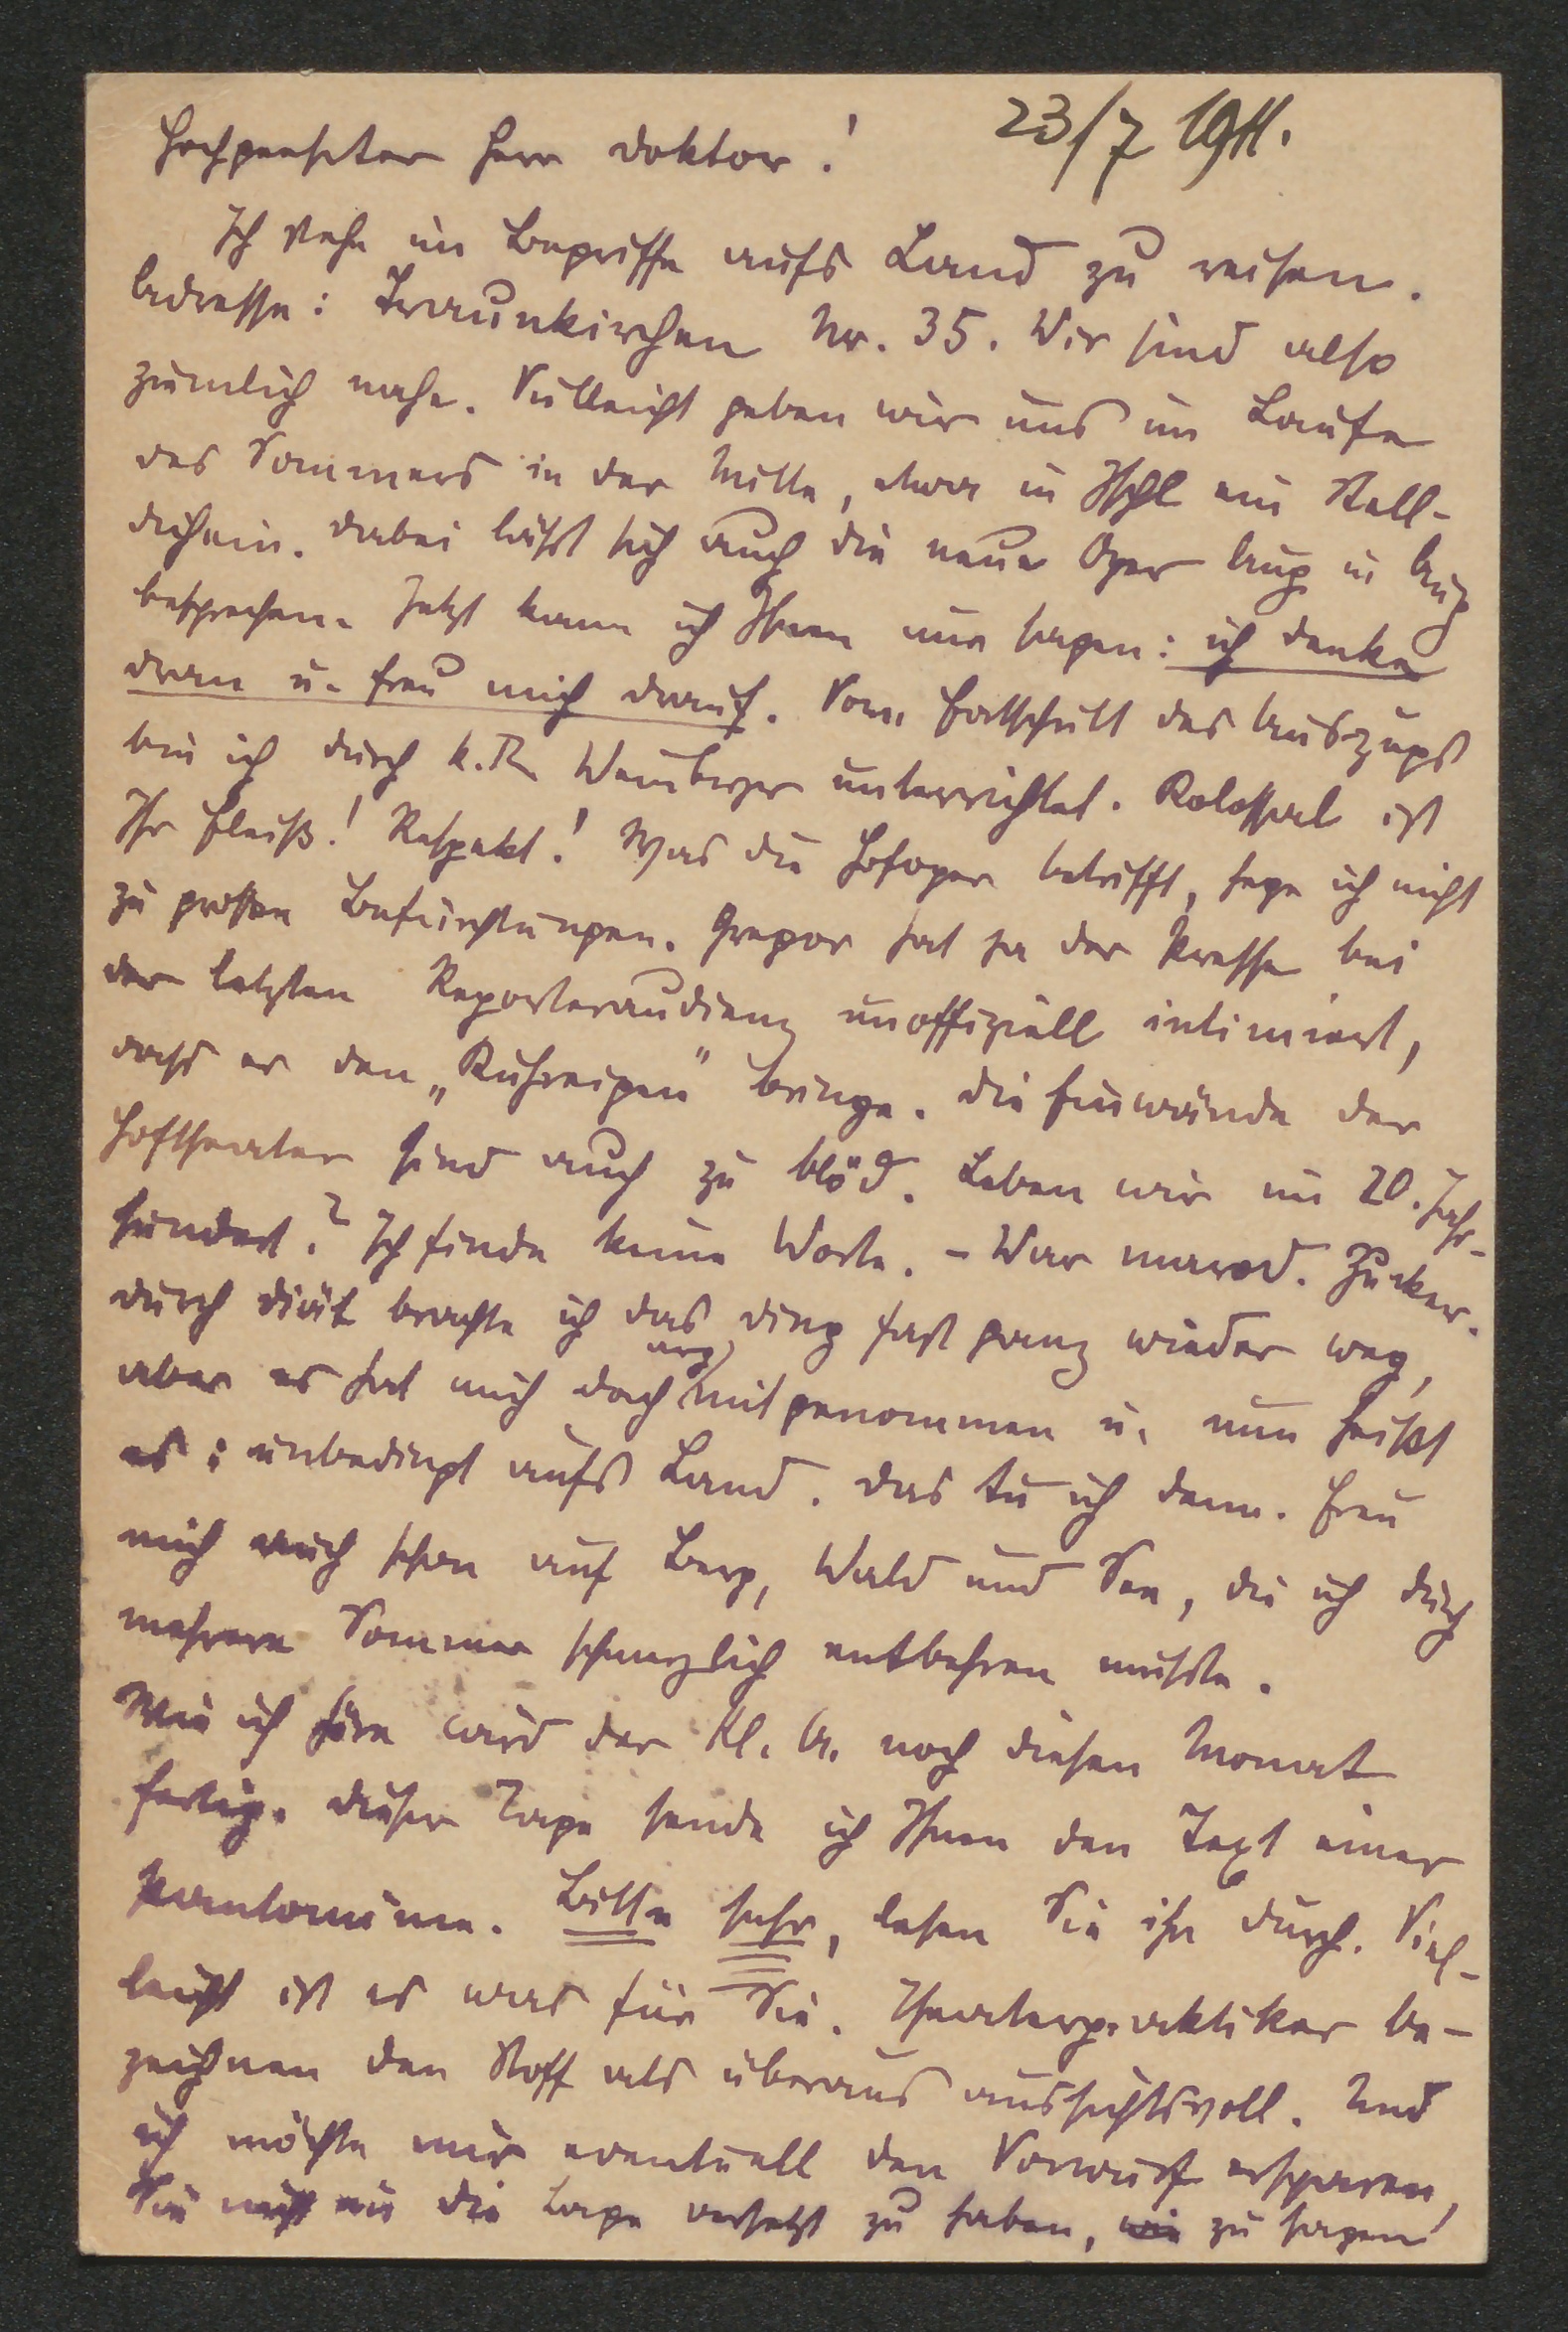 Hochgeehrter Herr Doktor!
23/7 1911.
Ich stehe im Begriffe aufs Land zu reisen.
Adresse: Traunkirchen Nr. 35. Wir sind also
ziemlich nahe. Vielleicht geben wir uns im Laufe
des Sommers in der Mitte, etwa in Ischl ein Stell-
dichein. Dabei läßt sich auch die neue Oper Aug in Aug
besprechen. Jetzt kann ich Ihnen nur sagen: ich denke
dran u. freu mich drauf. Vom Fortschritt des Auszugs
bin ich durch k. R. Weinberger unterrichtet. Kolossal ist
Ihr Fleiß! Respekt! Was die Hofoper betrifft, hege ich nicht
zu großen Befürchtungen. Gregor hat ja der Presse bei
der letzten Reporteraudienz unoffiziell intimiert,
dass er den „Kuhreigen" bringe. Die Einwände der
Hoftheater sind auch zu blöd. Leben wir im 20. Jahr-
hundert? Ich finde keine Worte. – War marod. Zucker.
Durch Diät brachte ich das Ding fast ganz wieder weg,
aber es hat mich doch arg mitgenommen u. nun heißt
es: unbedingt aufs Land. Das tu ich denn. Freu
mich auch schon auf Berg, Wald und See, die ich durch
mehrere Sommer schmerzlich entbehren mußte.
Wie ich höre wird der Kl. A. noch diesen Monat
fertig. Dieser Tage sende ich Ihnen den Text einer
Pantomime. Bitte sehr, lesen Sie ihn durch. Viel-
leicht ist es was für Sie. Theaterpraktiker be-
zeichnen den Stoff als überaus aussichtsvoll. Und
ich möchte mir eventuell den Vorwurf ersparen,
Sie nicht in die Lage versetzt zu haben, zu sagen!